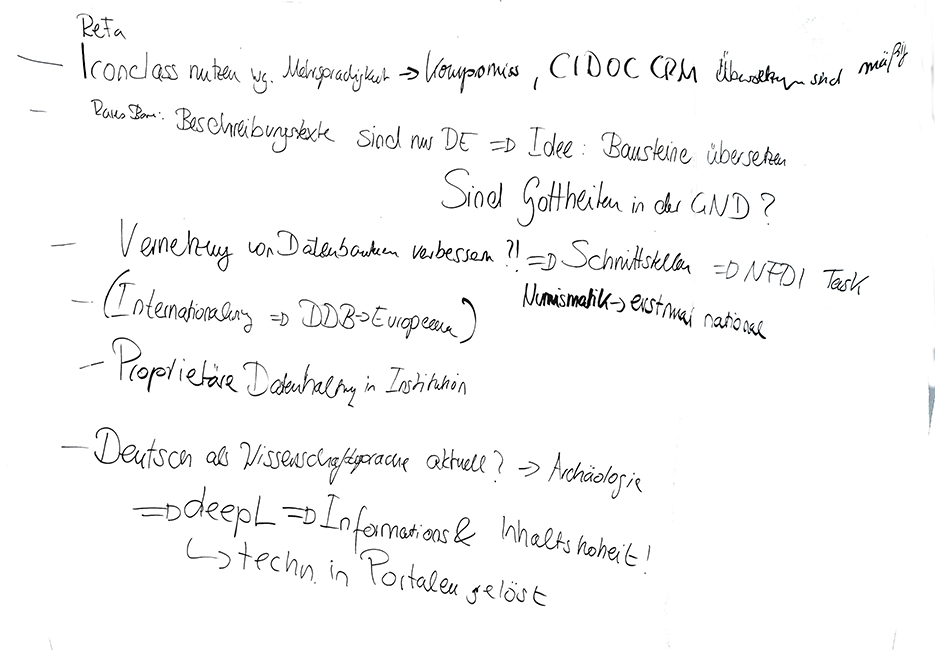 ReTa
— Iconclass nutzen wg. Mehrsprachigkeit → Kompromiss, CIDOC CRM Übersetzungen sind mäßig
— Beschreibungstexte sind nur DE ⇒ Idee: Bausteine übersetzen
Sind Gottheiten in der GND?
— Vernetzung von Datenbanken verbessern ?! ⇒ Schnittstellen ⇒ NFDI Task
Numismatik → erstmal national
— (Internationalisierung ⇒ DDB → Europeana)
— Proprietäre Datenhaltung in Institution
— Deutsch als Wissenschaftssprache aktuell? → Archäologie
⇒ deepL ⇒ Informations & Inhaltshoheit!
↳ techn. in Portalen gelöst